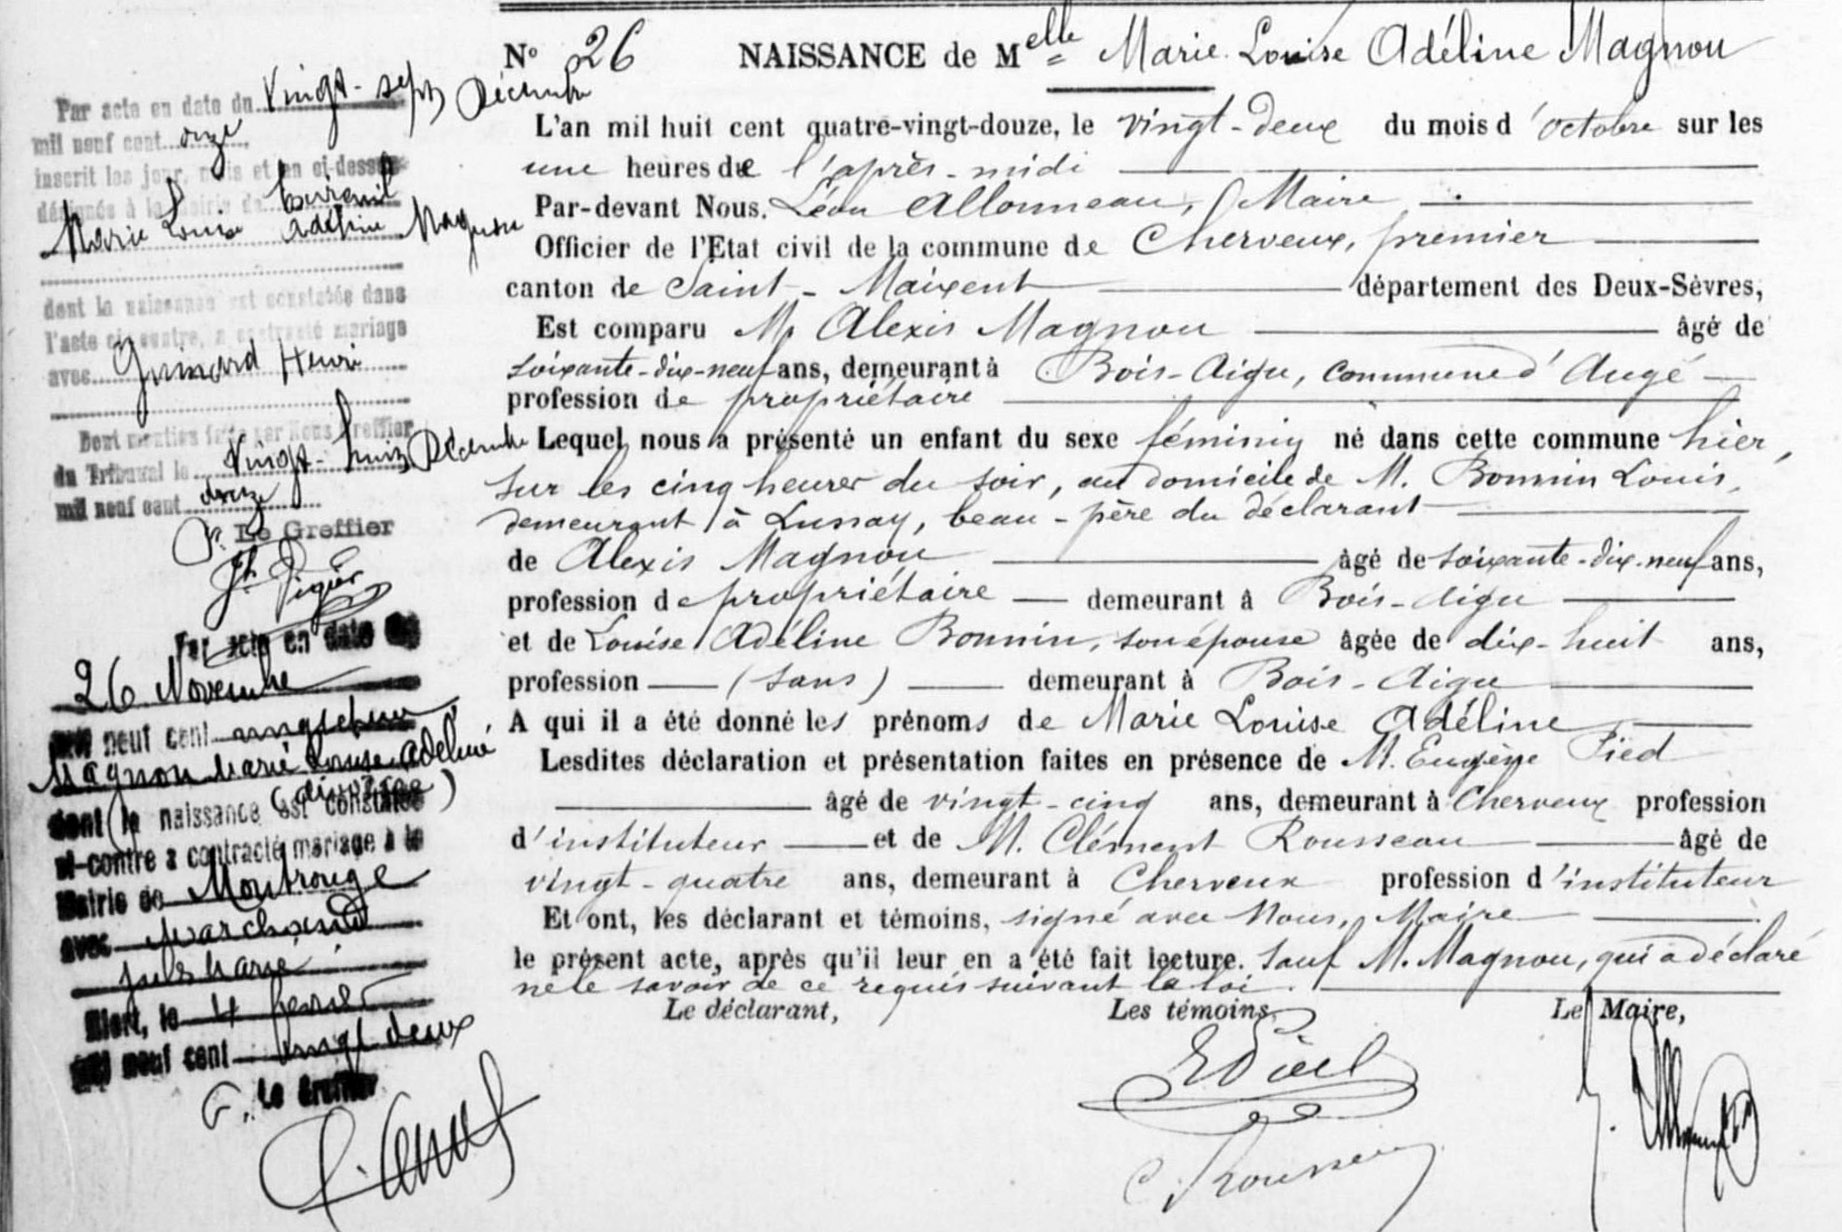 N° 26 NAISSANCE de Melle Marie Louise Adéline Magnou
L'an mil huit cent quatre-vingt-douze, le vingt-deux du mois d'octobre sur les
une heures de l'après-midi
Par-devant Nous. Léon Allonneau, Maire
Officier de l'Etat civil de la commune de Cherveux, premier
canton de Saint-Maixent département des Deux-Sèvres,
Est comparu M. Alexis Magnou âgé de
soixante-dix-neuf ans, demeurant à Bois-Aigu, commune d'Augé
profession de propriétaire
Lequel nous a présenté un enfant du sexe féminin né dans cette commune hier,
sur les cinq heures du soir, au domicile de M. Bonnin Louis,
demeurant à Lussay, beau-père du déclarant
de Alexis Magnou âgé de soixante-dix-neuf ans,
profession de propriétaire demeurant à Bois-Aigu
et de Louise Adéline Bonnin, son épouse âgée de dix-huit ans,
profession (sans) demeurant à Bois-Aigu
A qui il a été donné les prénoms de Marie Louise Adéline
Lesdites déclaration et présentation faites en présence de M. Eugène Pied
âgé de vingt-cinq ans, demeurant à Cherveux profession
d'instituteur et de M. Clément Rousseau âgé de
vingt-quatre ans, demeurant à Cherveux profession d'instituteur
Et ont, les déclarant et témoins, signé avec Nous, Maire
le présent acte, après qu'il leur en a été fait lecture. sauf M. Magnou, qui a déclaré
ne le savoir de ce requis suivant la loi.
Le déclarant, Les témoins, Le Maire,
E Pied
C Rousseau
Par acte en date du vingt-sept Décembre
mil neuf cent onze
inscrit les jour, mois et an ci-dessus
désignés à la Mairie de
Marie Louise Adéline Magnou
dont la naissance est constatée dans
l'acte ci-contre, a contracté mariage
avec Guimard Henri
Dont mention faite par Nous Greffier
du Tribunal le vingt-huit Décembre
mil neuf cent onze
Pr. Le Greffier
Par acte en date du
26 Novembre
mil neuf cent vingt et un
Magnou Marie Louise Adéline
(divorcée)
dont la naissance est constatée
ci-contre a contracté mariage à la
Mairie de Montrouge
avec Marchand
Jules Marie
Niort, le 4 février
mil neuf cent vingt deux
P. Le Greffier